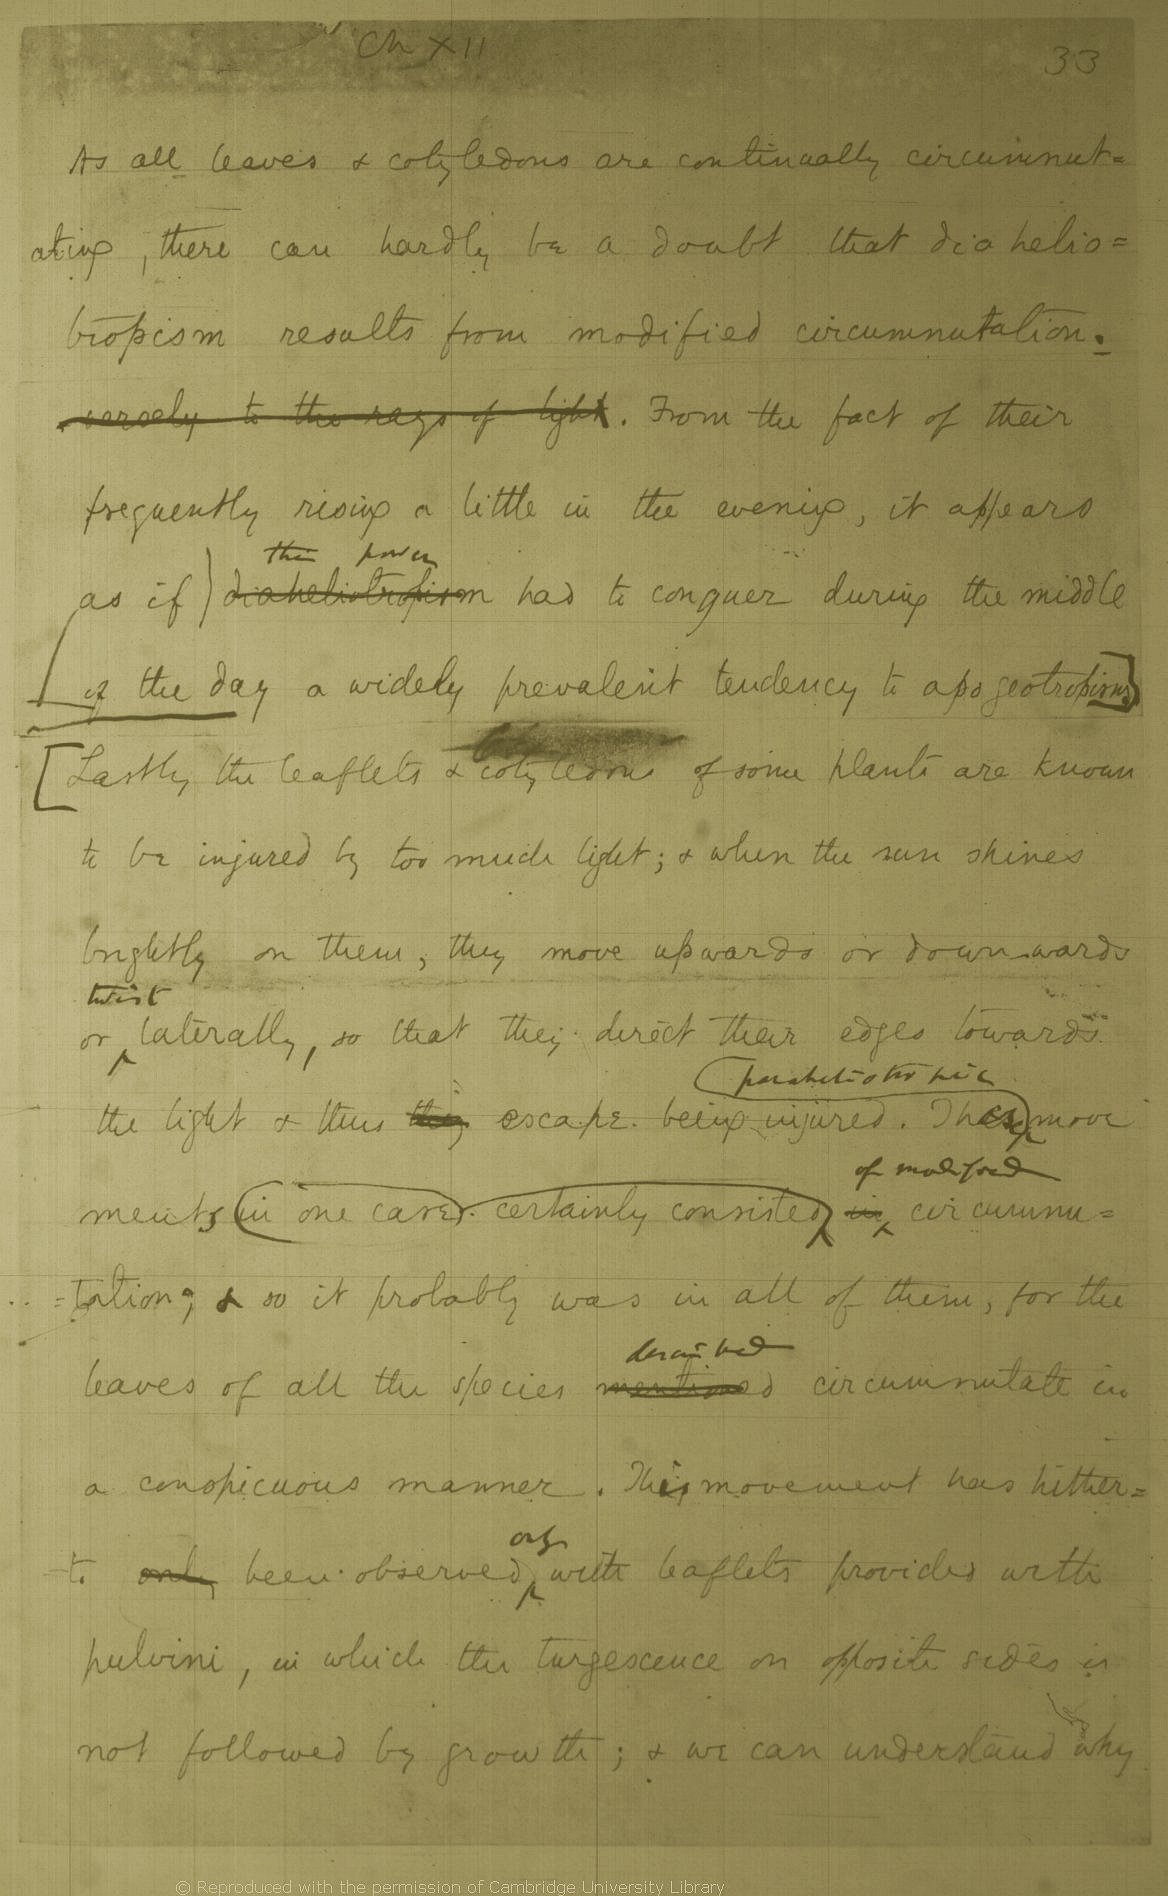 Ch XII
33
As all leaves & cotyledons are continually circumnut=
ating, there can hardly be a doubt that diahelio=
tropism results from modified circumnutation.
versely to the rays of light. From the fact of their
frequently rising a little in the evening, it appears
this power
as if diaheliotropism had to conquer during the middle
of the day a widely prevalent tendency to apogeotropism.
Lastly the leaflets & cotyledons of some plants are known
to be injured by too much light; & when the sun shines
brightly on them, they move upwards or downwards
twist
or laterally, so that they direct their edges towards
paraheliotropic
the light & thus they escape being injured. These move
of modified
ments in one case certainly consisted in circumnu=
=tation; & so it probably was in all of them, for the
described
leaves of all the species mentioned circumnutate in
a conspicuous manner. This movement has hither=
only
to only been observed with leaflets provided with
pulvini, in which the turgescence on opposite sides is
not followed by growth; & we can understand why
© Reproduced with the permission of Cambridge University Library